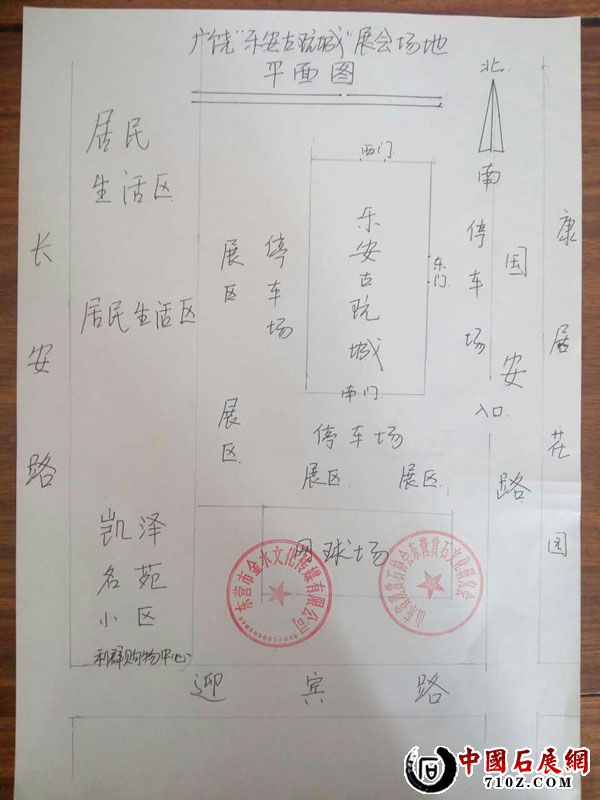 广饶“乐安古玩城”展会场地
平面图
北
南
居民
生活区
西门
长安路
居民生活区
展区
停车场
乐安古玩城
东门
停车场
国安路
康居花园
南门
入口
展区
停车场
展区
展区
网球场
凯泽
名苑
小区
东营市金水文化传媒有限公司
利群购物中心
迎宾路
中國石展網
710Z.COM